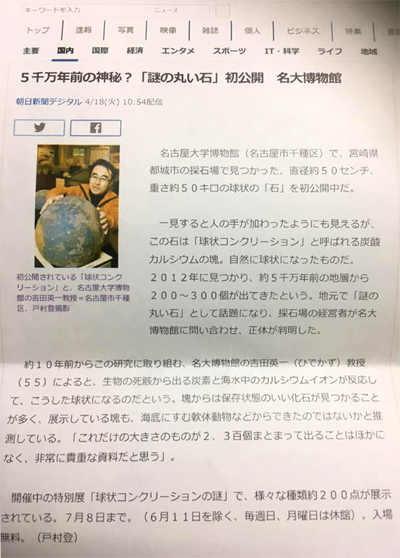 キーワードを入力
ニュース
トップ 速報 写真 映像 雑誌 個人 ビジネス 特集
主要 国内 国際 経済 エンタメ スポーツ IT・科学 ライフ 地域
５千万年前の神秘？「謎の丸い石」初公開　名大博物館
朝日新聞デジタル 4/18(火) 10:54配信
名古屋大学博物館（名古屋市千種区）で、宮崎県
都城市の採石場で見つかった、直径約５０センチ、
重さ約５０キロの球状の「石」を初公開中だ。
一見すると人の手が加わったようにも見えるが、
この石は「球状コンクリーション」と呼ばれる炭酸
カルシウムの塊。自然に球状になったものだ。
２０１２年に見つかり、約５千万年前の地層から
２００～３００個が出てきたという。地元で「謎の
丸い石」として話題になり、採石場の経営者が名大
博物館に問い合わせ、正体が判明した。
初公開されている「球状コンク
リーション」と、名古屋大学博物
館の吉田英一教授＝名古屋市千種
区、戸村登撮影
約１０年前からこの研究に取り組む、名大博物館の吉田英一（ひでかず）教授
（５５）によると、生物の死骸から出る炭素と海水中のカルシウムイオンが反応し
て、こうした球状になるのだという。塊からは保存状態のいい化石が見つかること
が多く、展示している塊も、海底にすむ軟体動物などからできたのではないかと推
測している。「これだけの大きさのものが２、３百個まとまって出ることはほかに
なく、非常に貴重な資料だと思う」。
開催中の特別展「球状コンクリーションの謎」で、様々な種類約２００点が展示
されている。７月８日まで。（６月１１日を除く、毎週日、月曜日は休館）。入場
無料。（戸村登）